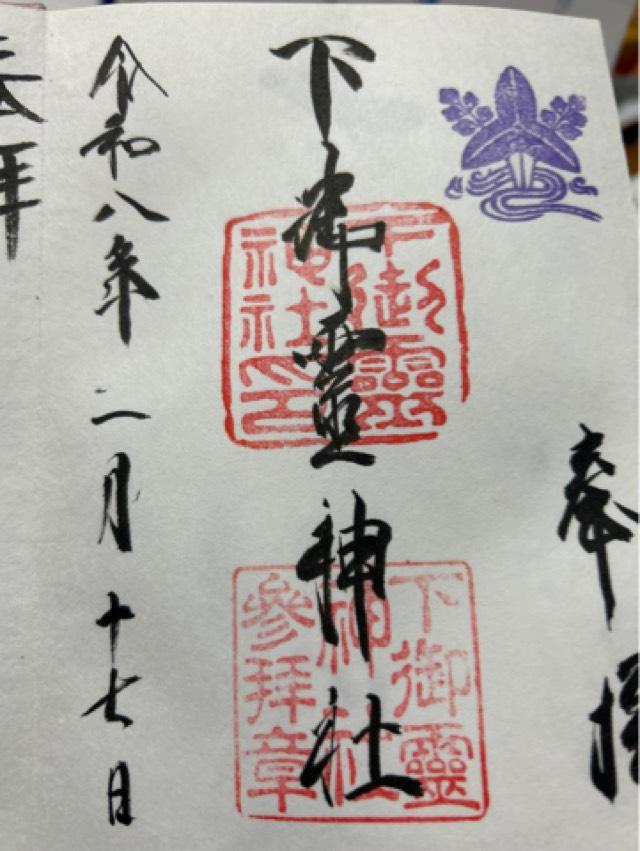 奉拝
下御靈神社
下御靈神社印
下御靈神社參拝章
令和八年 二月 十七日
奉拝